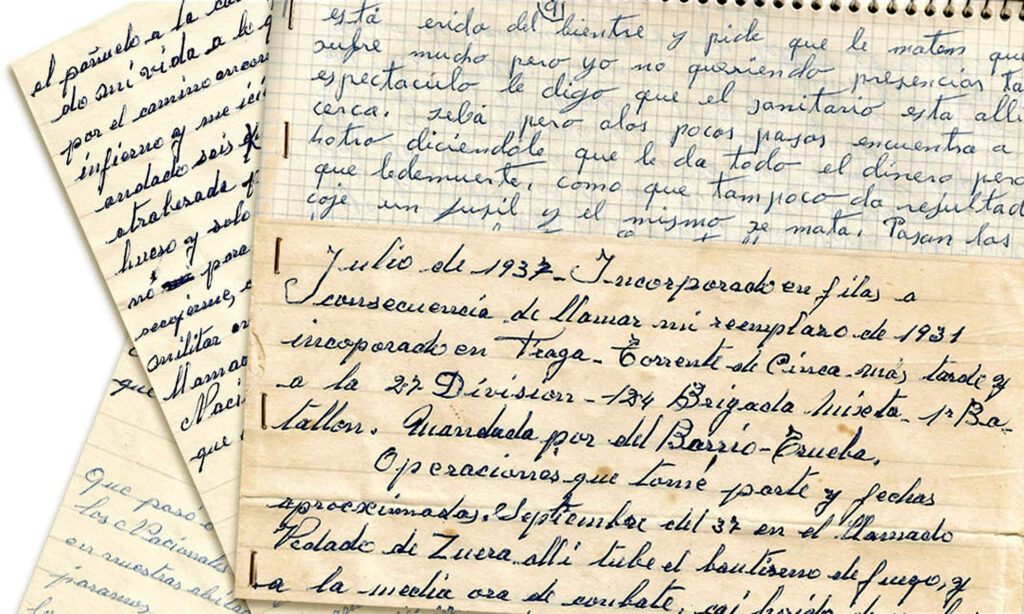 el pañuelo a la
do mi vida a le
por el camino
infierno y me
andado seis
atrabesada
hueso y solo
no para
recojerme,
militar en
llamado
Naci
que
que
Que paso
los Nacionales
en nuestras
paramos
91
está erido del bientre y pide que le maten que
sufre mucho pero yo no queriendo presencias ta
espectáculo le digo que el sanitario esta alli
cerca. sebá pero alos pocos pasos encuentra a
hotro diciendole que le da todo el dinero pero
que ledemuerte, como que tampoco da resultad
coje un fusil y el mismo se mata. Pasan las
Julio de 1937_Incorporado en filas a
consecuencia de llamar mi reemplazo de 1931
incoporado en Fraga_Torrente de Cinca más tarde y
a la 27 Division_124 Brigada Mixta_1º Ba-
tallon. Mandada por del Barrio-Trueba.
Operaciones que tomé parte y fechas
aprocximadas. Septiembre del 37 en el llamado
Vedado de Zuera alli tube el bautismo de fuego, y
a la media ora de combate, cai herido de